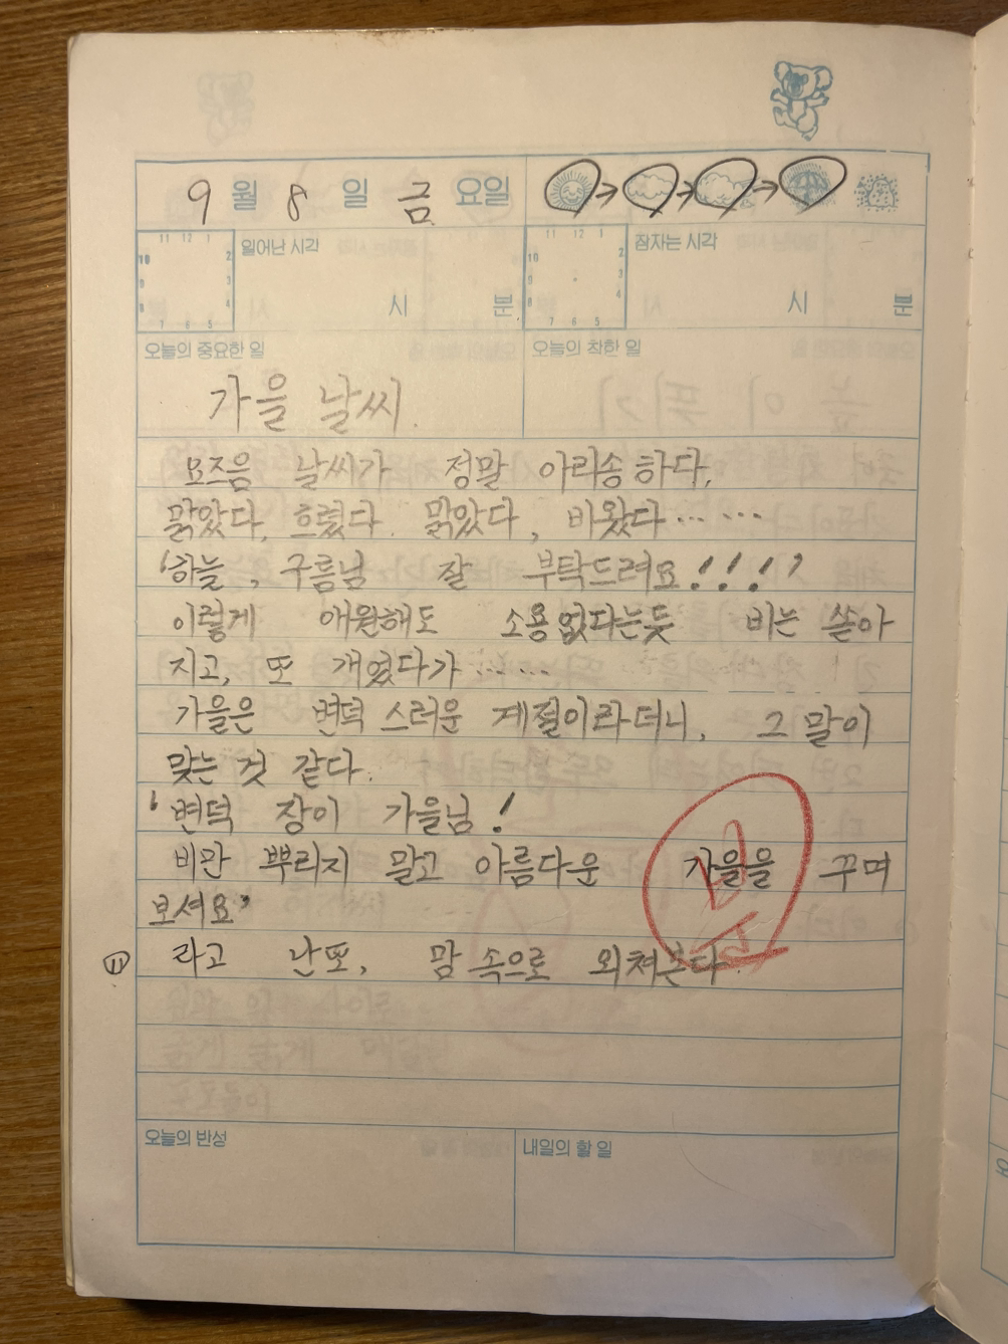 9 월 8 일 금 요일
일어난 시각
시 분
잠자는 시각
시 분
오늘의 중요한 일
오늘의 착한 일
가을 날씨.
요즈음 날씨가 정말 아리송하다.
맑았다, 흐렸다. 맑았다, 비왔다……
'하늘, 구름님 잘 부탁드려요!!!'
이렇게 애원해도 소용없다는듯 비는 쏟아
지고, 또 개였다가……
가을은 변덕스러운 계절이라더니, 그 말이
맞는 것 같다.
'변덕 장이 가을님!
비만 뿌리지 말고 아름다운 가을을 꾸며
보셔요'
⑪ 라고 난또, 맘 속으로 외쳐본다.
오늘의 반성
내일의 할 일